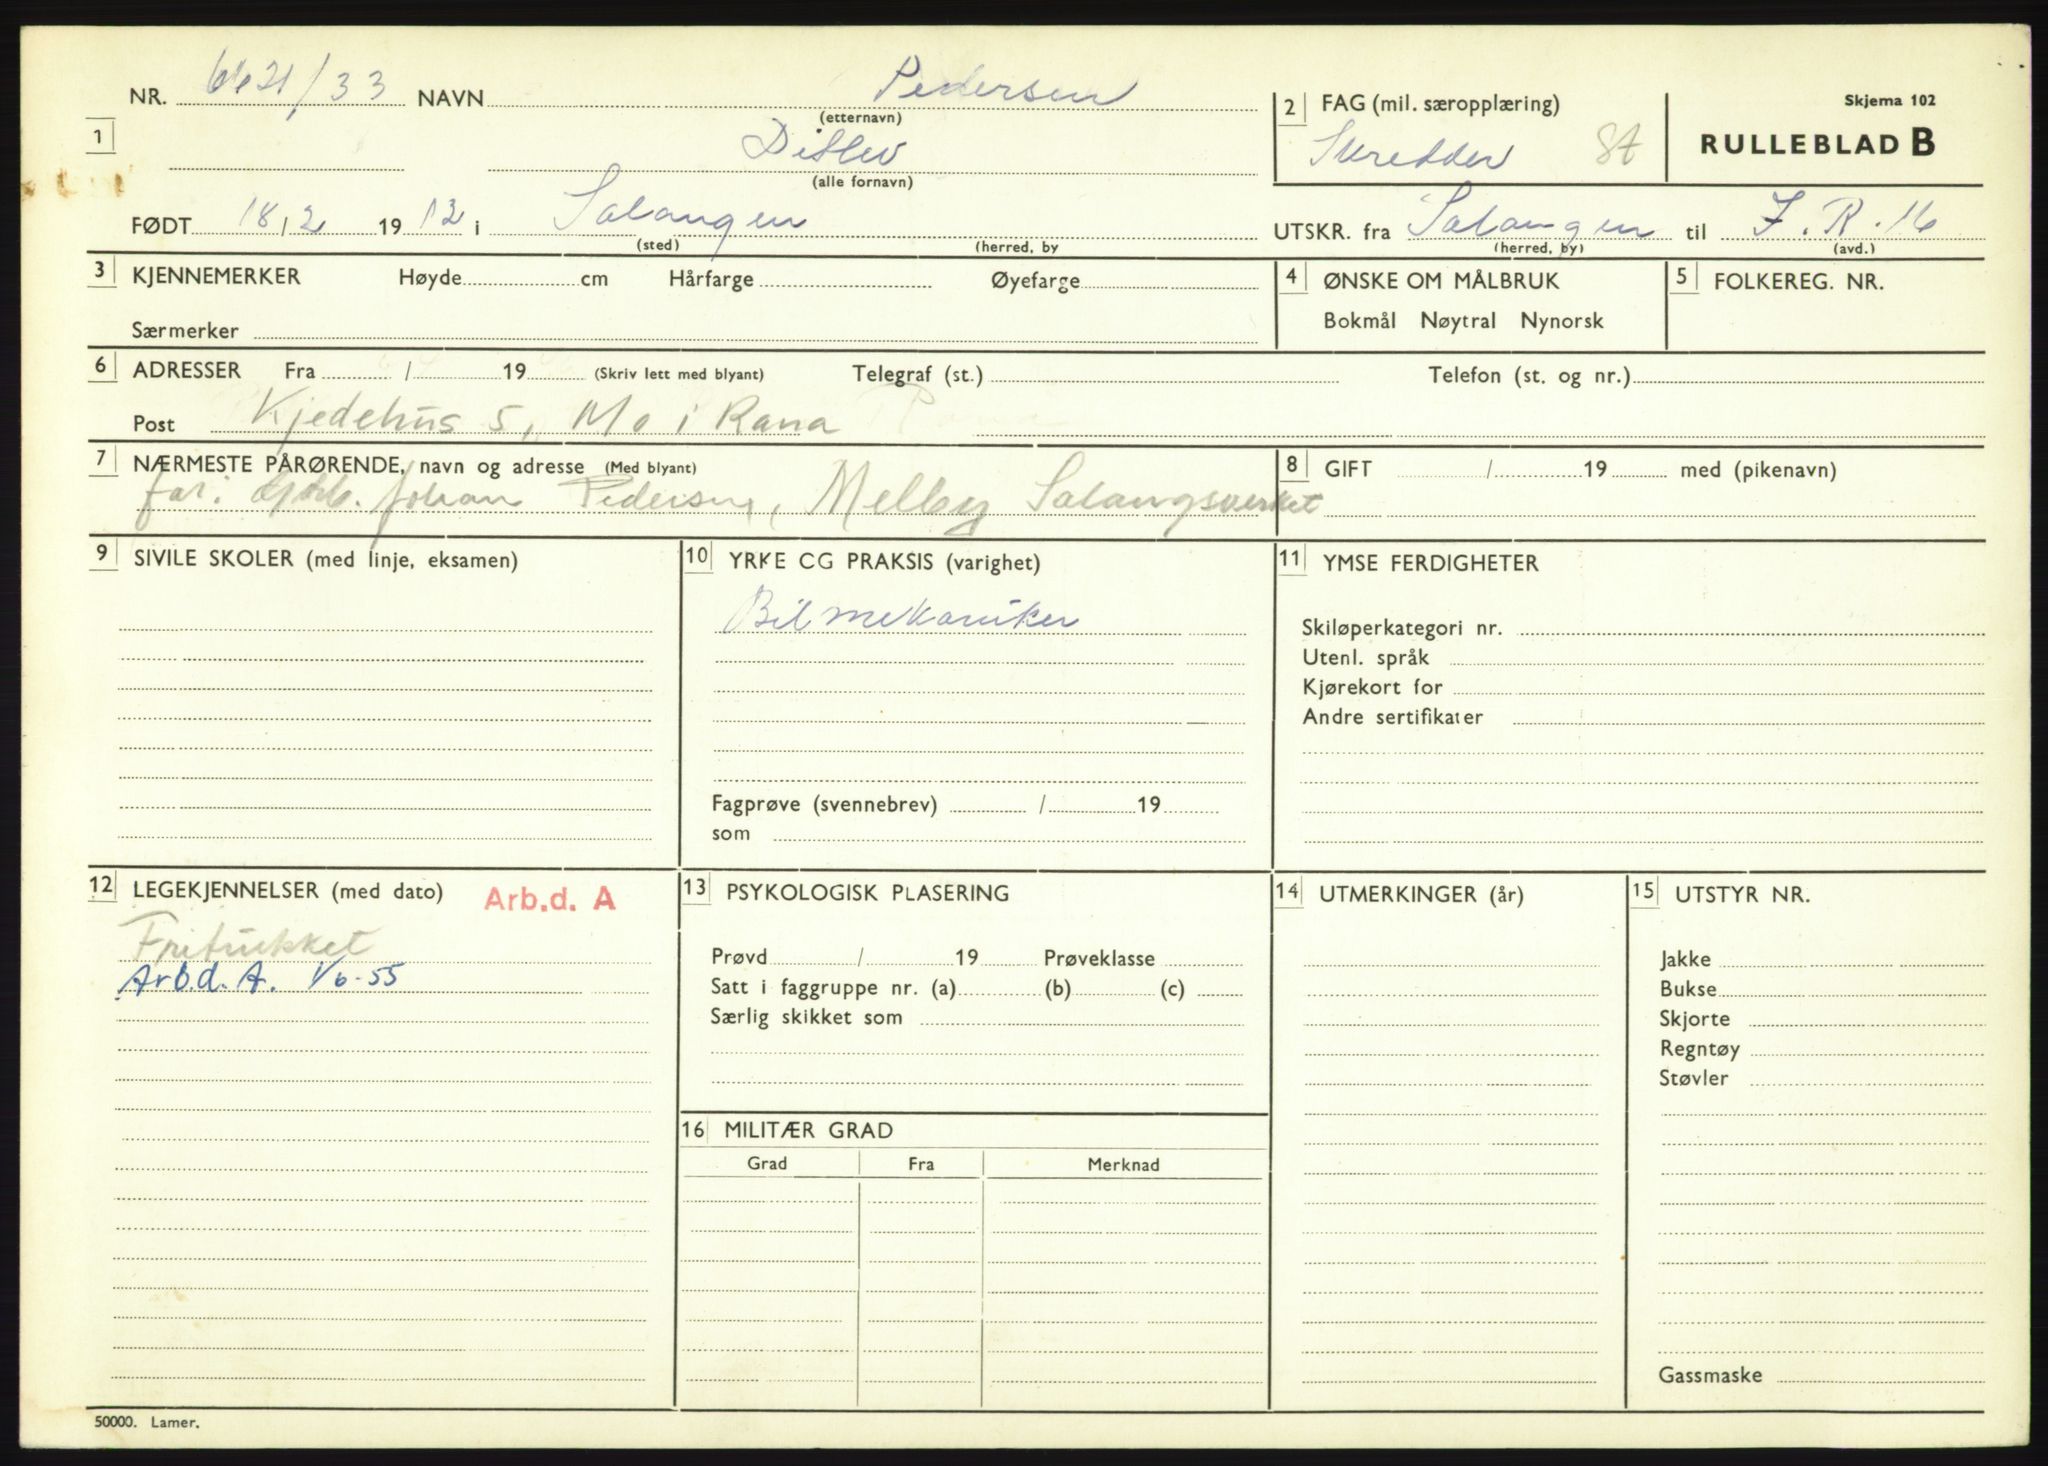 NR. 6621/33 NAVN Pedersen
(etternavn)
1 Ditlev
(alle fornavn)
2 FAG (mil. særopplæring)
Skredder St
Skjema 102
RULLEBLAD B
FØDT 18/2 1912 i Salangen
(sted) (herred, by
UTSKR. fra Salangen til I.R. 16
(herred, by) (avd.)
3 KJENNEMERKER Høyde cm Hårfarge Øyefarge
Særmerker
4 ØNSKE OM MÅLBRUK
Bokmål Nøytral Nynorsk
5 FOLKEREG. NR.
6 ADRESSER Fra / 19 (Skriv lett med blyant) Telegraf (st.) Telefon (st. og nr.)
Post Kjedehus 5, Mo i Rana
7 NÆRMESTE PÅRØRENDE, navn og adresse (Med blyant)
far: Johan Pedersen, Melby Salangsverket
8 GIFT / 19 med (pikenavn)
9 SIVILE SKOLER (med linje, eksamen)
10 YRKE CG PRAKSIS (varighet)
Bilmekaniker
Fagprøve (svennebrev) / 19
som
11 YMSE FERDIGHETER
Skiløperkategori nr.
Utenl. språk
Kjørekort for
Andre sertifikater
12 LEGEKJENNELSER (med dato) Arb.d. A
Fritukket
Arb.d.A. 1/6-55
13 PSYKOLOGISK PLASERING
Prøvd / 19 Prøveklasse
Satt i faggruppe nr. (a) (b) (c)
Særlig skikket som
14 UTMERKINGER (år)
15 UTSTYR NR.
Jakke
Bukse
Skjorte
Regntøy
Støvler
Gassmaske
16 MILITÆR GRAD
Grad Fra Merknad
50000. Lamer.